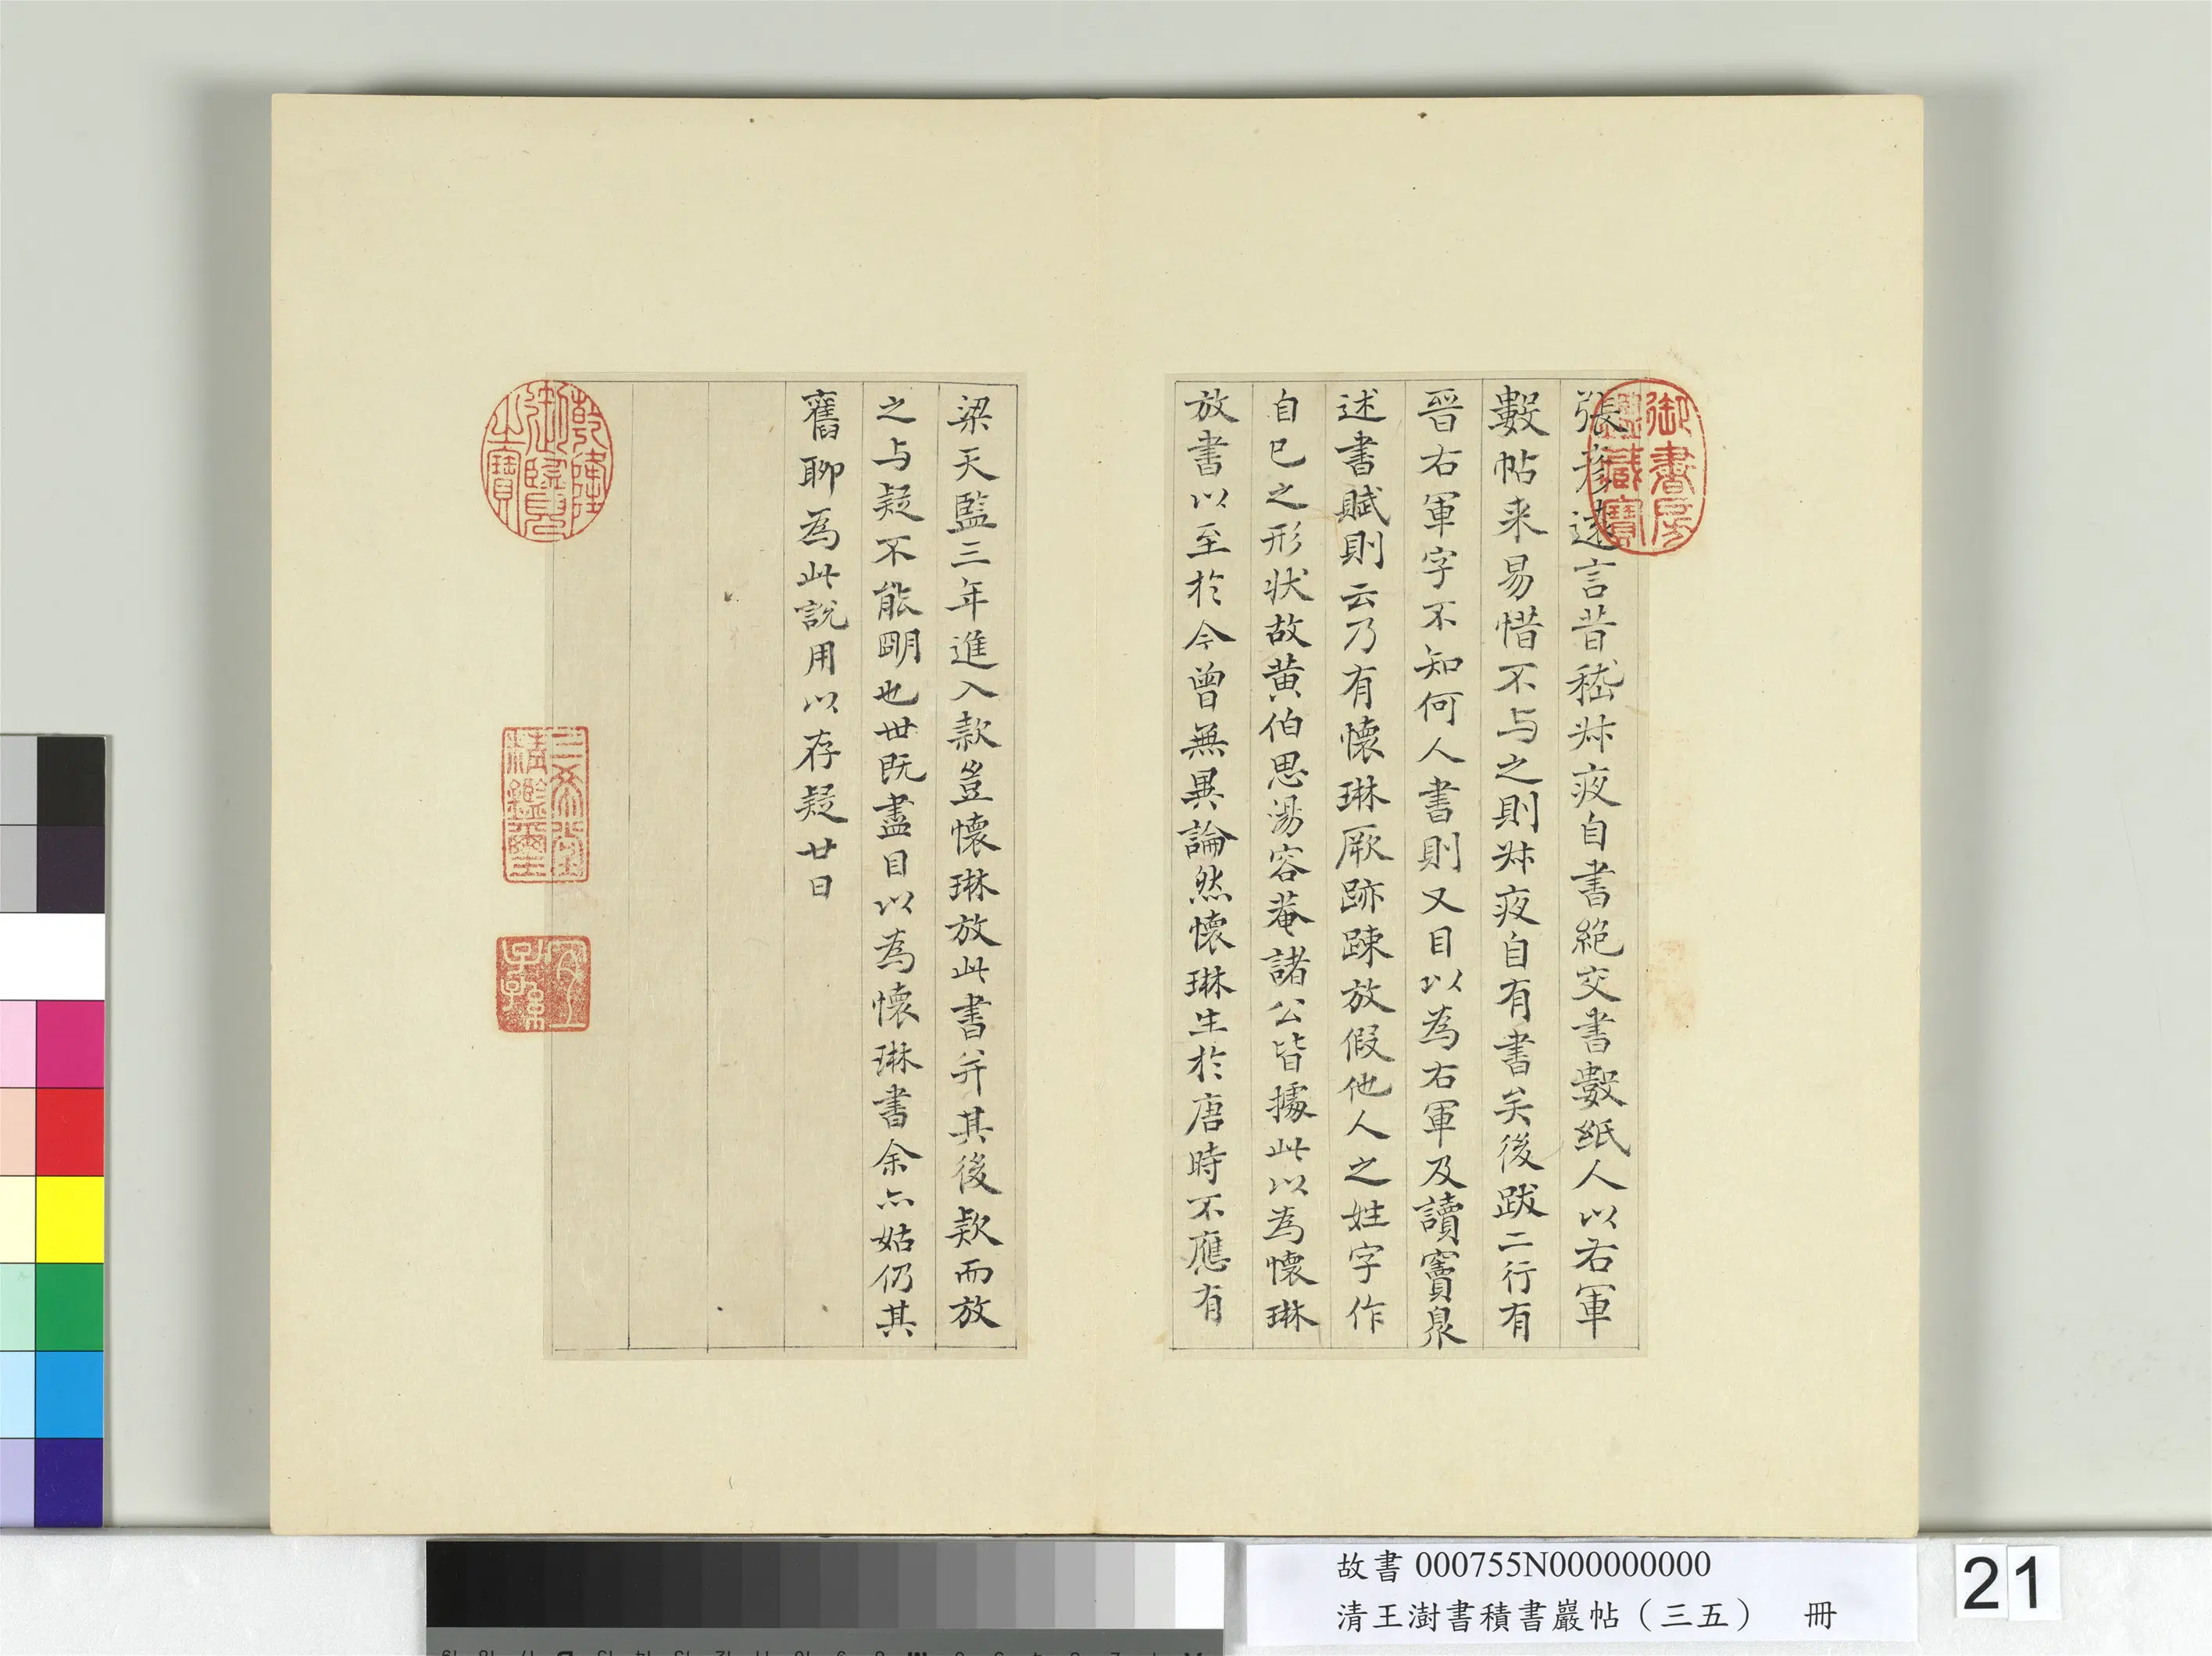 張彥遠言昔嵇叔夜自書絕交書數紙人以右軍
數帖来易惜不与之則叔夜自有書矣後跋二行有
晉右軍字不知何人書則又目以為右軍及讀竇臮
述書賦則云乃有懷琳厥跡疎放假他人之姓字作
自己之形狀故黄伯思湯容菴諸公皆據此以為懷琳
放書以至於今曾無異論然懷琳生於唐時不應有
梁天監三年進入款豈懷琳放此書并其後欵而放
之与疑不能明也世既盡目以為懷琳書余亦姑仍其
舊聊為此說用以存疑廿日
御書房
鑑藏寶
乾隆
御覽
之寶
三希堂
精鑑璽
宜
子孫
故書 000755N000000000
清王澍書積書巖帖（三五） 冊
21